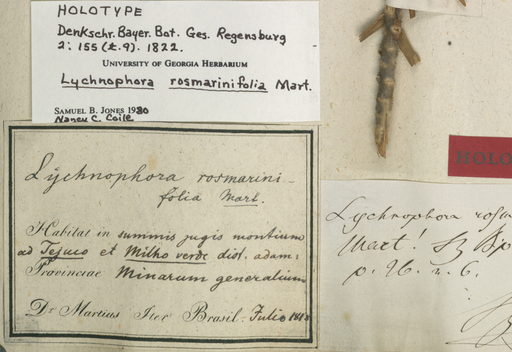 HOLOTYPE
Denkschr. Bayer. Bot. Ges. Regensburg
2: 155 (t.9). 1822.
UNIVERSITY OF GEORGIA HERBARIUM
Lychnophora rosmarinifolia Mart.
SAMUEL B. JONES 1980
Nancy C. Coile
Lychnophora rosmarini-
folia Mart.
Habitat in summis jugis montium
ad Tejuco et Milho verde dist. adam:
Provinciae Minarum generalium
Dr Martius Iter Brasil. Julio 1818
HOLO
Lychnophora rosm
Mart!
p.